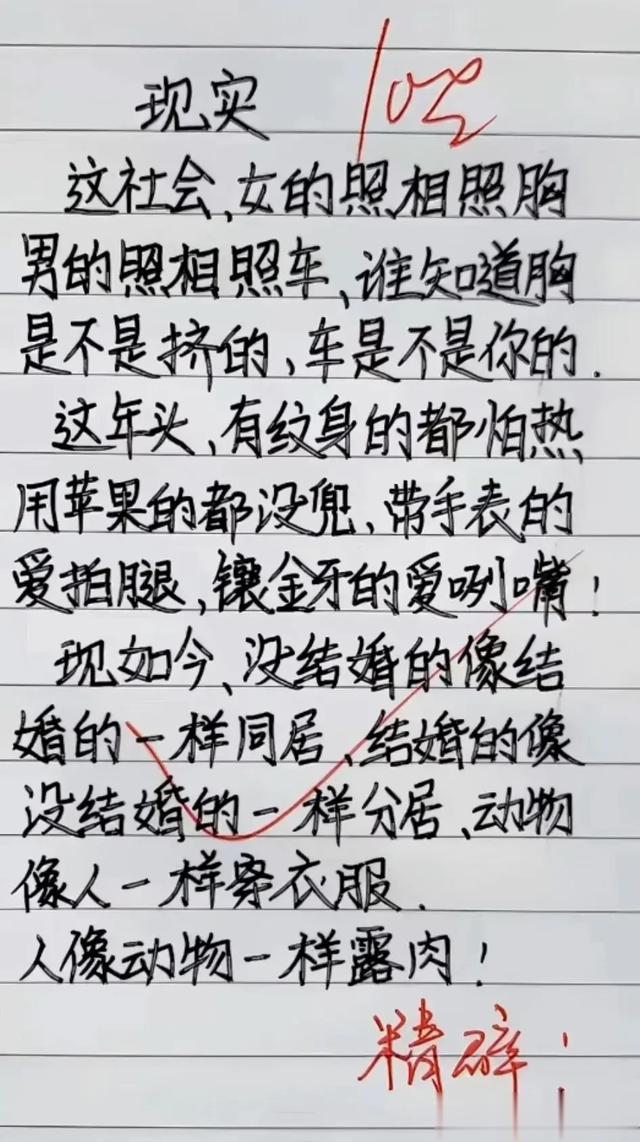 现实
100
这社会、女的照相照胸
男的照相照车、谁知道胸
是不是挤的,车是不是你的.
这年头、有纹身的都怕热
用苹果的都没兜、带手表的
爱拍腿,镶金牙的爱咧嘴!
现如今、没结婚的像结
婚的一样同居、结婚的像
没结婚的一样分居、动物
像人一样穿衣服.
人像动物一样露肉!
精辟!